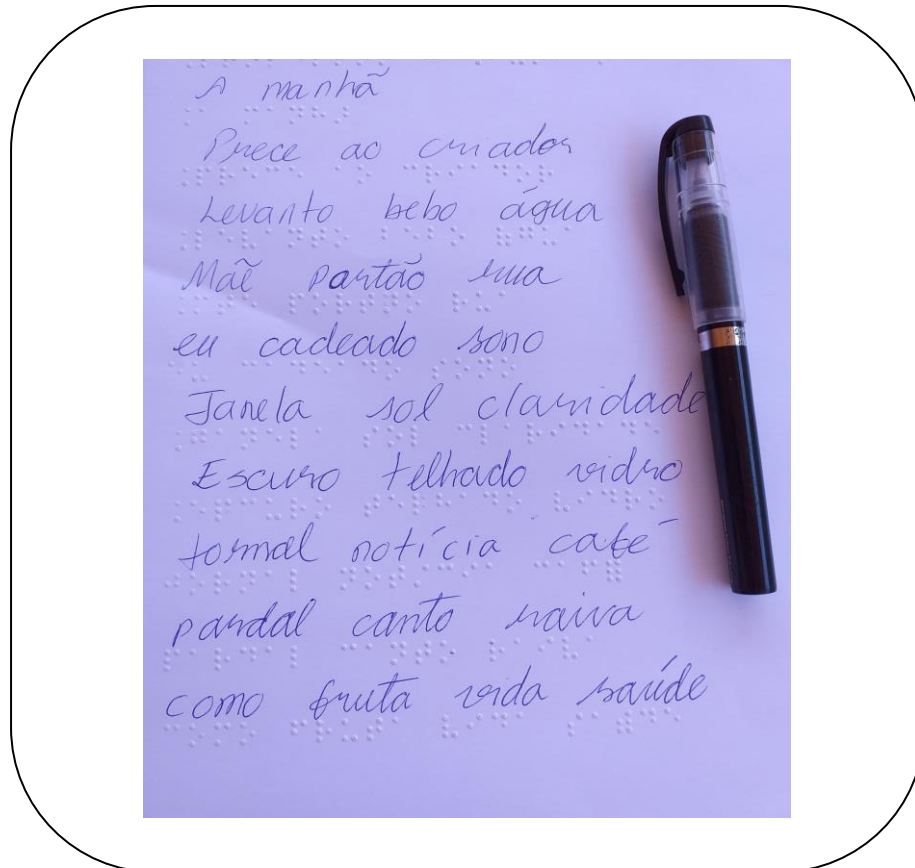 A manhã
Prece ao criador
Levanto bebo água
Mãe partão rua
eu cadeado sono
Janela sol claridade
Escuro telhado vidro
Jornal notícia café
pardal canto raiva
como fruta vida saúde